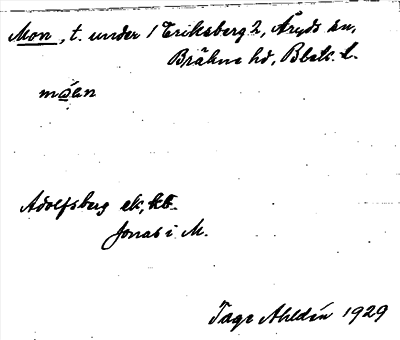 Mon, t. under 1 Eriksberg 2, Åryds sn,
Bräkne hd, Blek. l.
móen
Adolfsberg ek, kb.
Jonas i M.
Tage Ahldén 1929